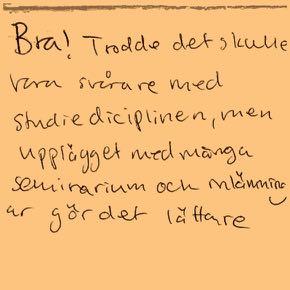 Bra! Trodde det skulle
vara svårare med
studiediciplinen, men
upplägget med många
seminarium och inlämning
ar gör det lättare